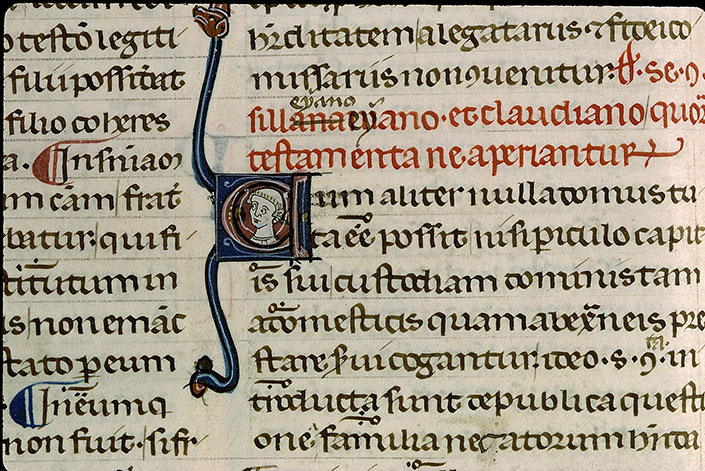 o testō legiti
filii possidat
filio coheres
a. In sn̄iaoꝫ
um cām frat̄
batur. qui fi
stitutum in
is non emāc
stato ꝑ eum
In ēumq
non fuit. si fr
hr̄editatem alegatariis ⁊ fideico
missariis non ꝯuenitur. de .se. ꝯ.
sillaniano et claudiano quoꝝ
testamenta ne aperiantur
Cum aliter nulla domus tu
ta eē possit nisi ꝑiculo capit
is sui custodiam dominis tam
adomesticis quam abex̄neis pre
stare s̄ui cogantur. ideo .s. ꝯ. in
troducta sunt de publica questi
one fāmilia necatorum habita